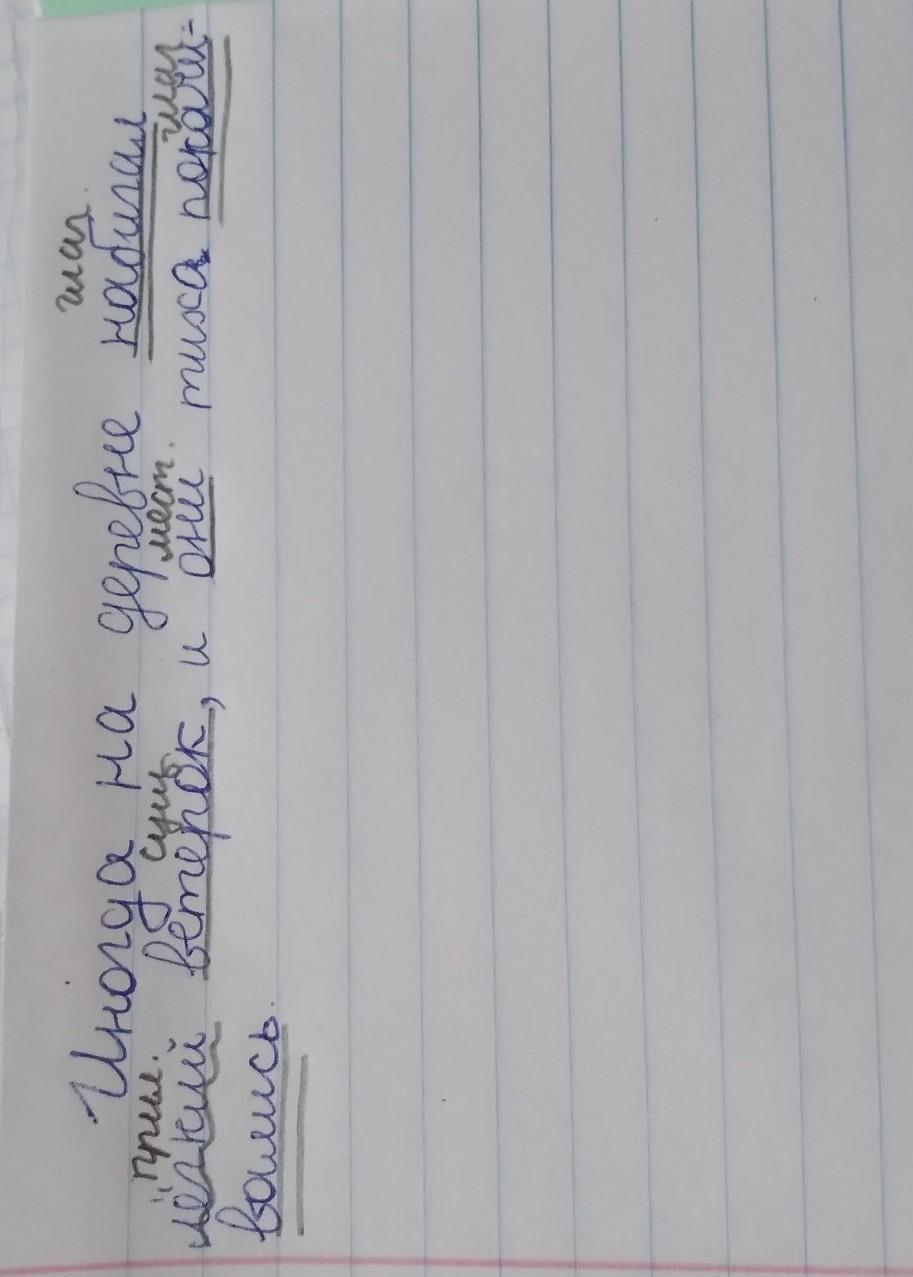 глаг.
Иногда на деревне набигал
прил. сущ мест. глаг
лёгкий ветерок, и они тиха покачи-
вались.